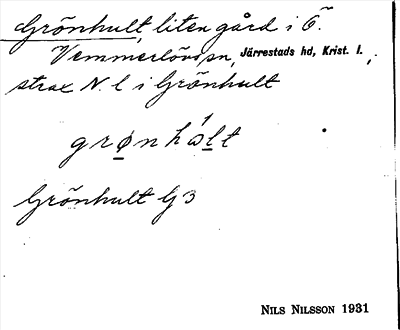 Grönhult, liten gård i Ö.
Vemmerlövs sn, Järrestads hd, Krist. l.,
strax N. l i Grönhult
grønhält
Grönhult G 3
NILS NILSSON 1931